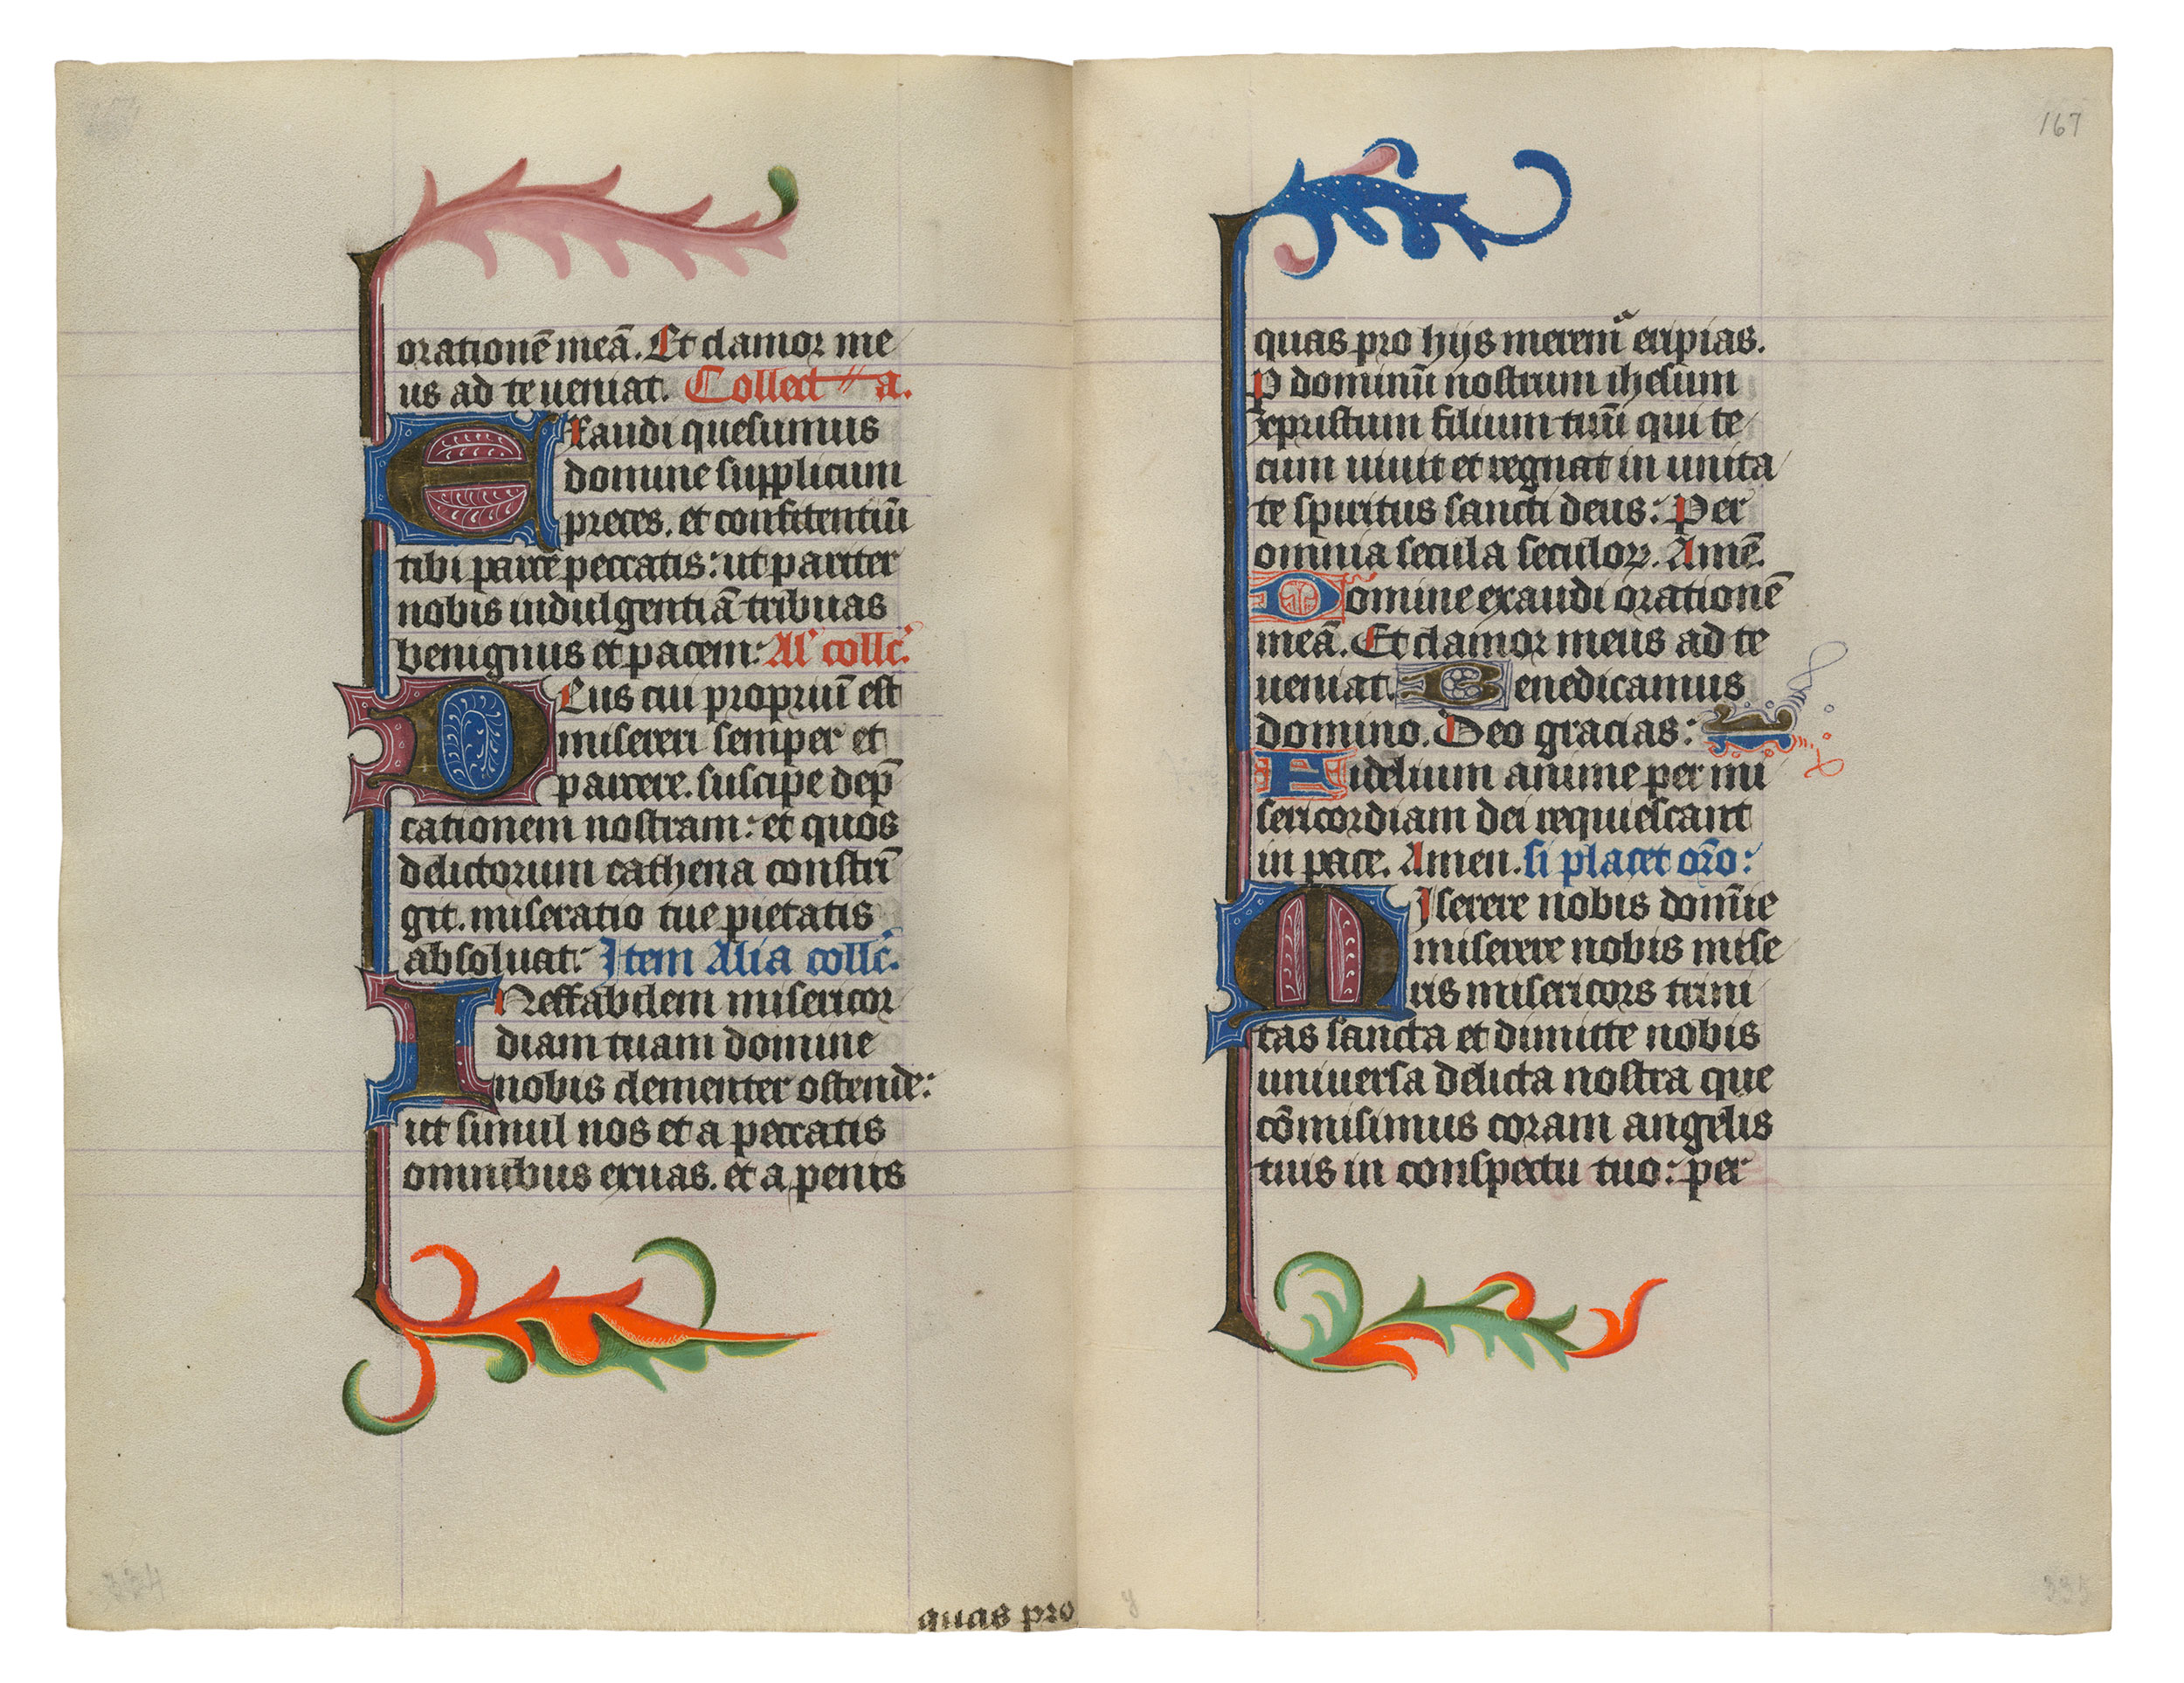 orationē meā. Et clamor me
us ad te ueniat. Collecta.
Exaudi quesumus
domine supplicum
preces. et confitentiū
tibi parce peccatis: ut pariter
nobis indulgentiā tribuas
benignus et pacem: Al' coll̄c.
Deus cui propriū est
misereri semper et
parcere. suscipe dep̄
cationem nostram: et quos
delictorum cathena constrī
git. miseratio tue pietatis
absoluat: Item Alia coll̄c.
Ineffabilem misericor
diam tuam domine
nobis clementer ostende:
ut simul nos et a peccatis
omnibus exuas. et a penis
quas pro
167
quas pro hijs meremᷓ eripias.
P dominū nostrum ihesum
xpristum filium tuū qui te
cum uiuit et regnat in unita
te spiritus sancti deus: Per
omnia secula seculoꝝ. Amē.
Domine exaudi orationē
meā. Et clamor meus ad te
ueniat. Benedicamus
domino. Deo gracias:
Fidelium anime per mi
sericordiam dei requiescant
in pace. Amen. si placet or̄o:
Miserere nobis domīe
miserere nobis mise
ris misericors trini
tas sancta et dimitte nobis
universa delicta nostra que
cōmisimus coram angelis
tuis in conspectu tuo: per
334
y
335